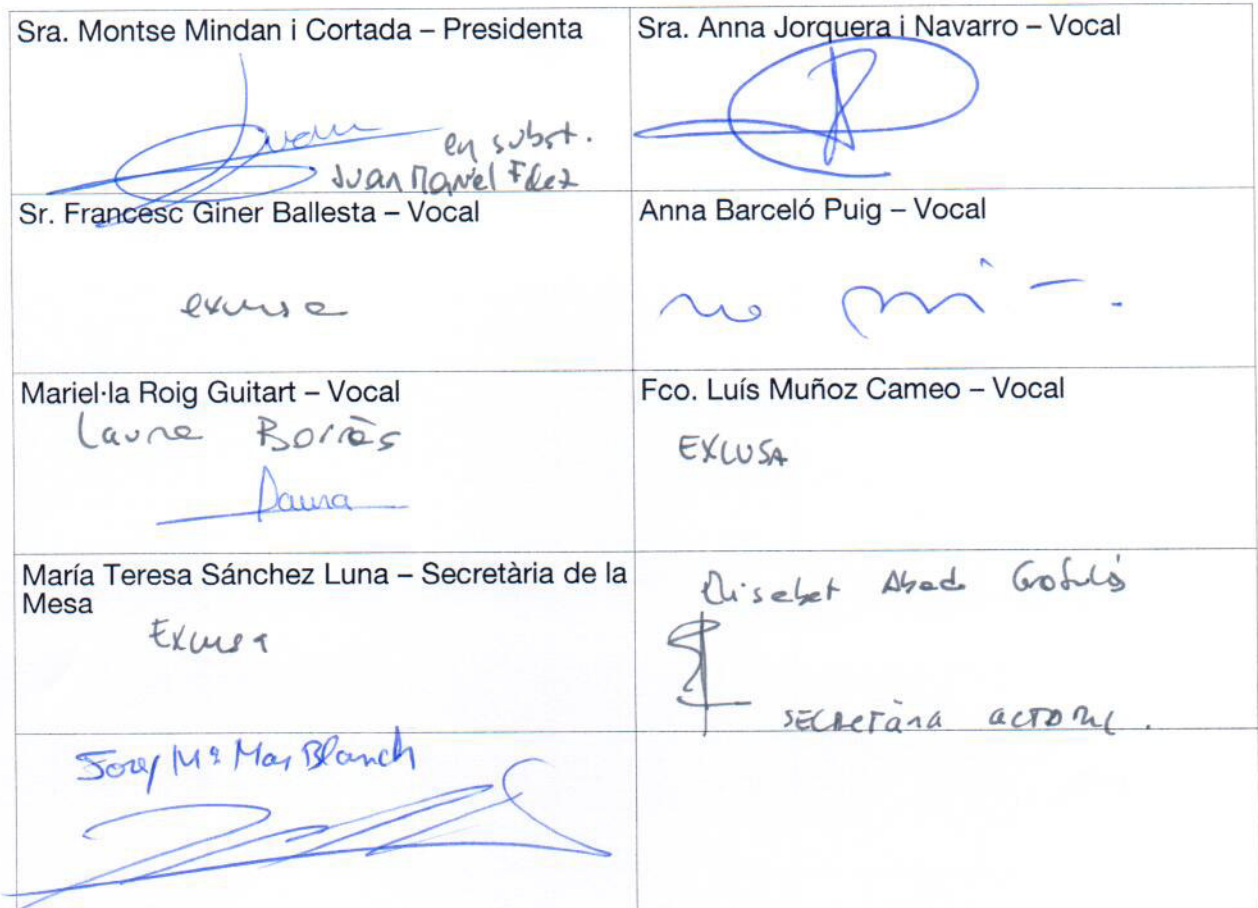 Sra. Montse Mindan i Cortada – Presidenta
en subst.
Juan Manuel Fdez
Sra. Anna Jorquera i Navarro – Vocal
Sr. Francesc Giner Ballesta – Vocal
excusa
Anna Barceló Puig – Vocal
Mariel·la Roig Guitart – Vocal
Laura Borràs
Laura
Fco. Luís Muñoz Cameo – Vocal
EXCUSA
María Teresa Sánchez Luna – Secretària de la
Mesa
Excusa
Elisabet Abad
SECRETÀRIA
Mª Mas Blanch